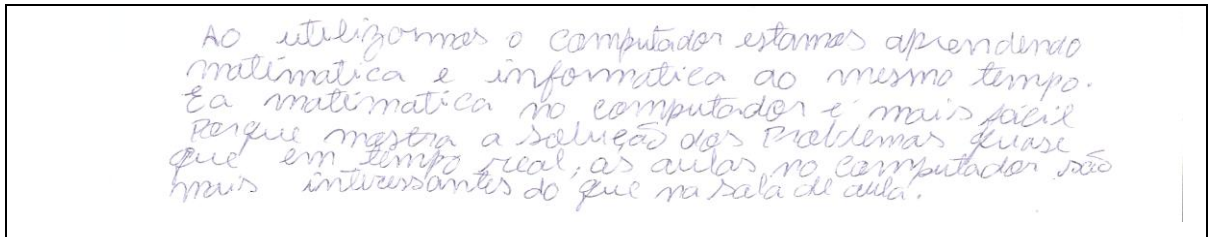 Ao utilizarmos o computador estamos aprendendo
matimatica e informatica ao mesmo tempo.
E a matimatica no computador é mais fácil
Porque mostra a solução dos Problemas quase
que em tempo real, as aulas no computador são
mais interessantes do que na sala de aula.